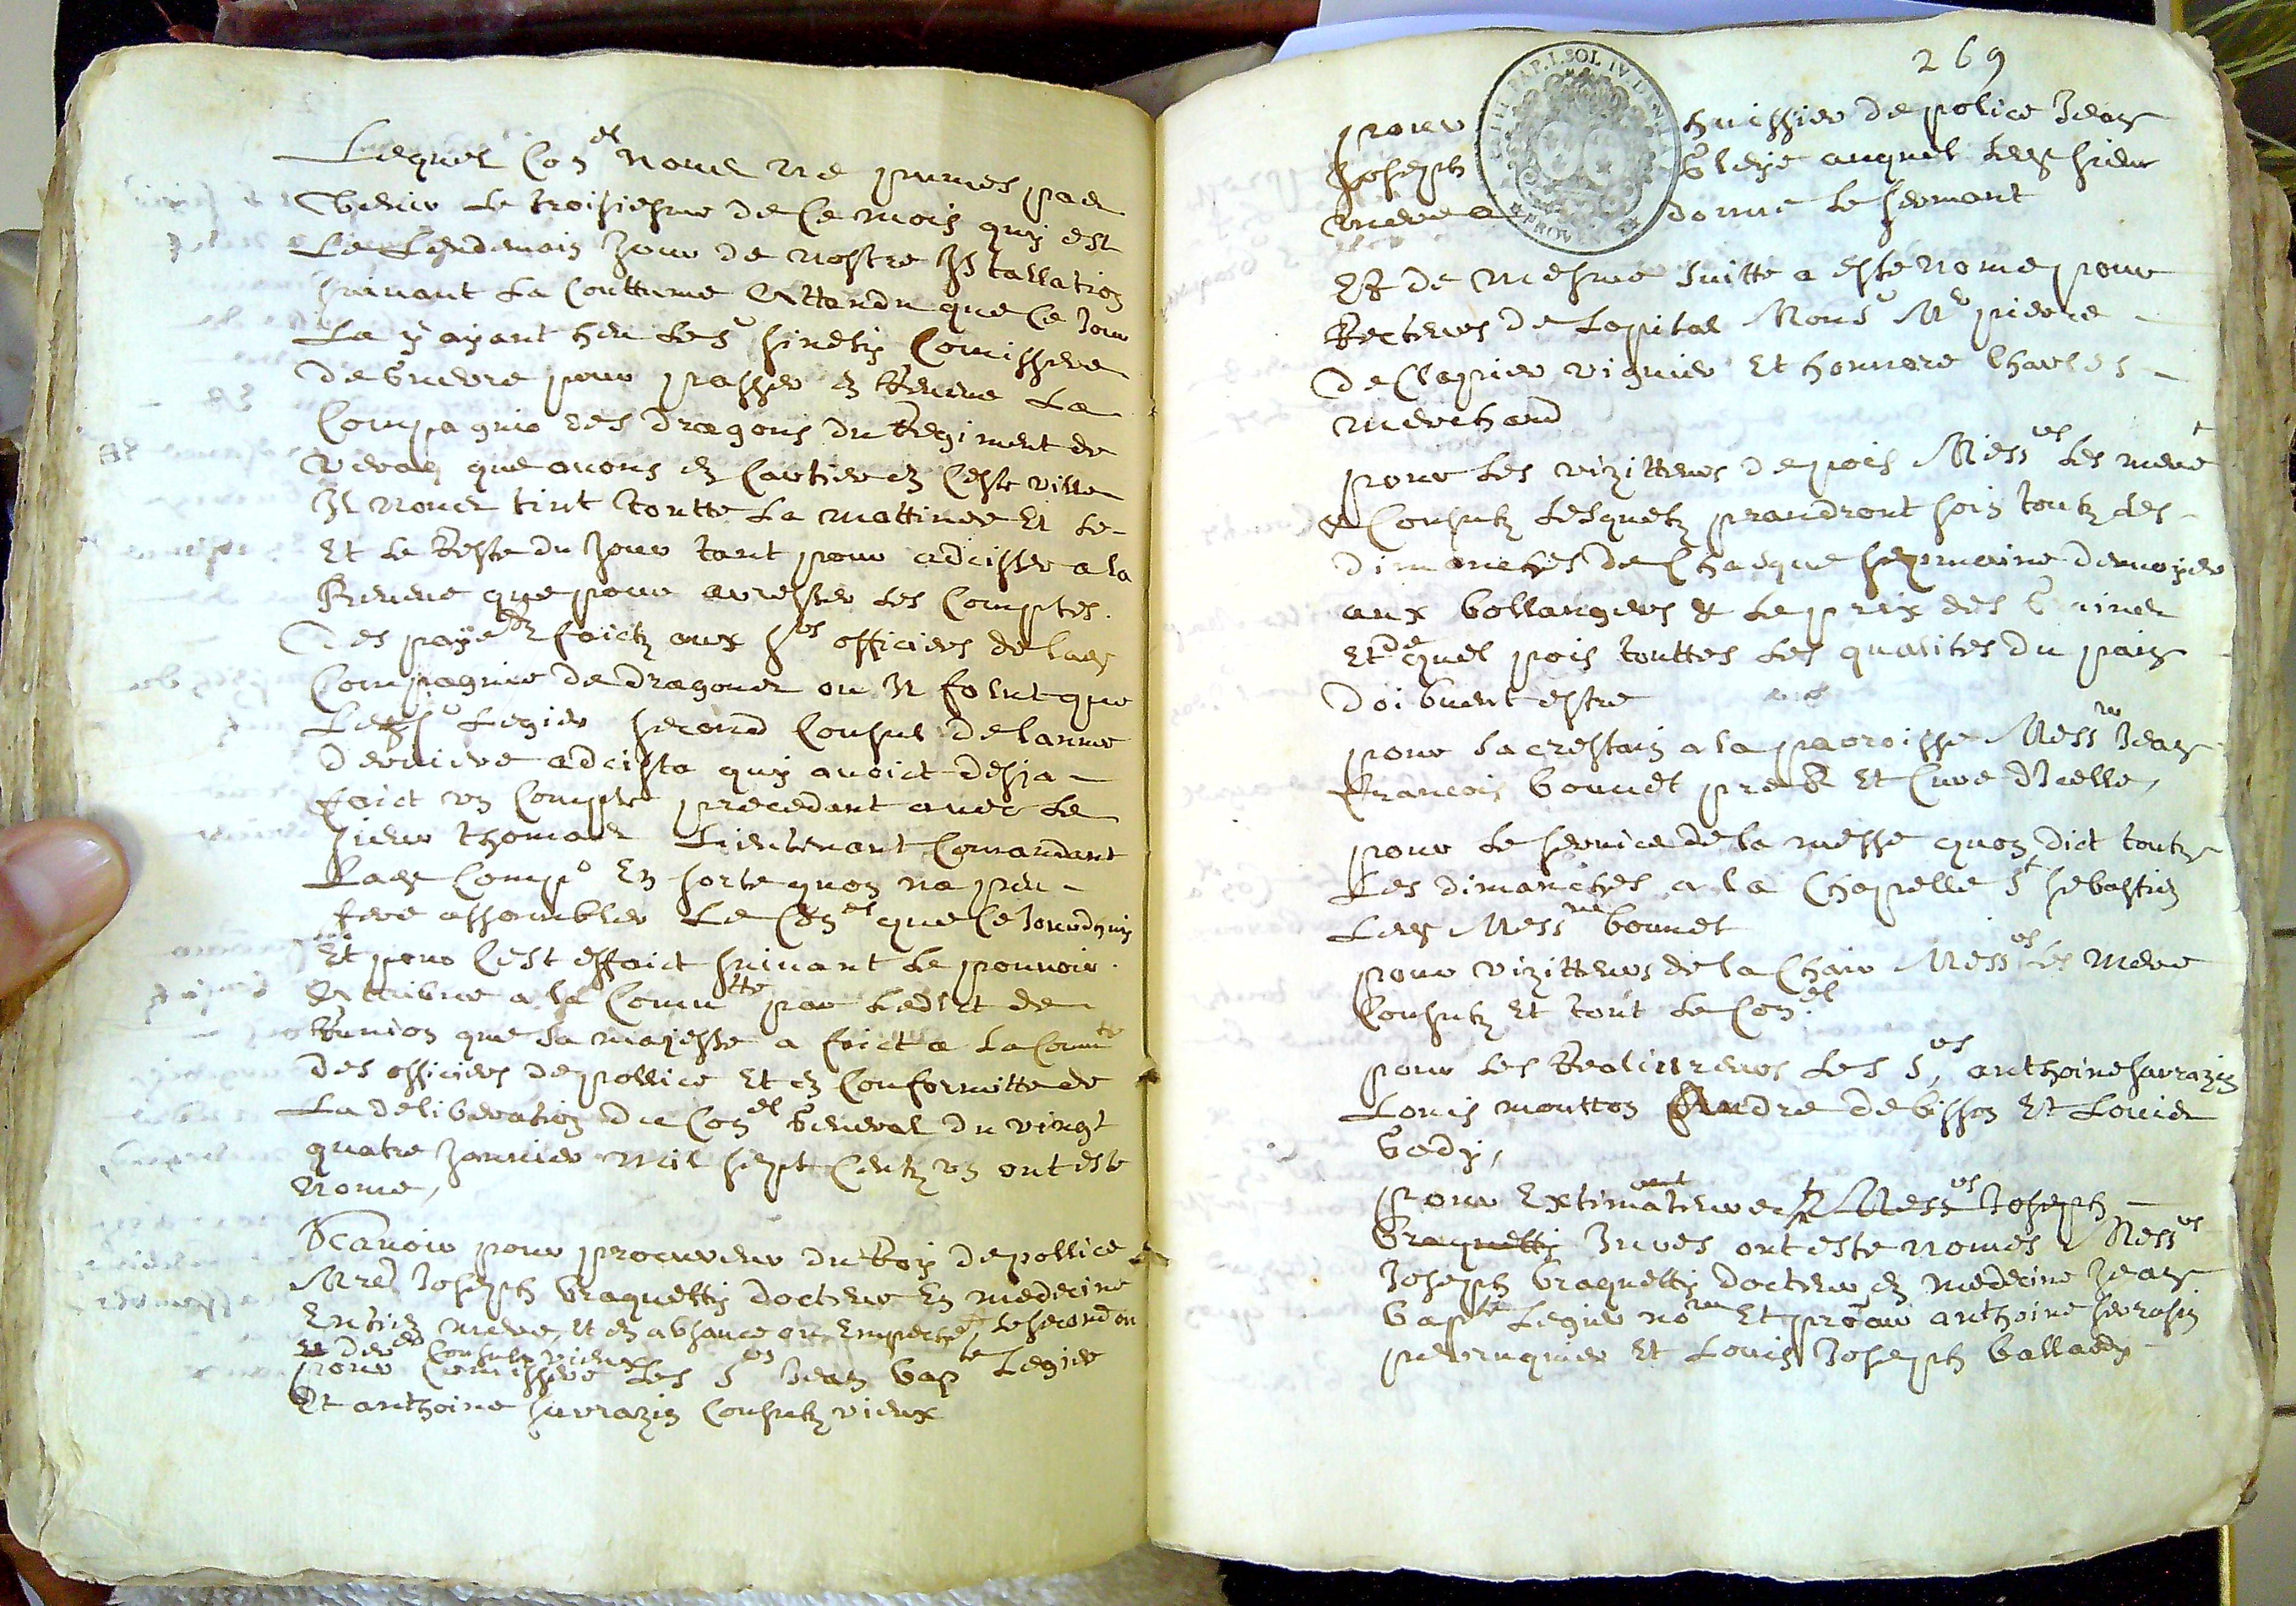 Lequel Con.el nous ne pumes pas
thenir le troisiesme de ce mois quy est
le lendemain jour de nostre Instalation
suivant la couttume attandu que ce jour
la y ayant heu le sr sinety comissere
de guerre pour passer en reveue la
Compagnie des dragons du Regiment de
verac que avons en cartier en ceste ville
Il nous tint toutte la mattinee et le
Et le reste du jour tant pour adcister a la
Reveue que pour arrester les comptes
des payemts faictz aux srs officiers de lad
Compagnie de dragons ou Il falut que
led sr Legier second Consul de lannee
derniere adcista quy avoict desja
faict un compte precedant avec le
sieur thomas Lieutenant Comandant
lade Compe En sorte quon na peu
fere assembler le Con.el que ce jourdhuy
Et pour cest effaict suivant le pouvoir
attribue a la Comutte par ledict de
Reunion que sa majeste a faict a la Comte
des officiers de pollice et en Conformitte de
la deliberation du Con.el general du vingt
quatre janvier mil sept centz un ont este
nome,
Scavoir pour procureur du Roy de pollice
Mre Joseph braquetty docteur En medecine
Entien mere, et en absance ou Empechet le second ou
et der Consulz vieux
pour Comissere les Srs Jean bapte Legier
Et anthoine sarrazin Consulz vieux
269
pour huissier de police Jean
Joseph gleye auquel led sieur
mere a donne le sermant
Et de mesme suitte a este nome pour
Recteurs de Lopital Monsr Mr pierre
de Clapier viguier Et honnore Charles
merchand
pour les vizitteurs de pois Messrs les mere
& Consulz lesquelz prandront soin toutz les
dimanches de chasque semaine denvoyer
aux bollangers & le prix des graines
Et de quel pois touttes les qualites du pain
doibuent estre
pour sacrestain a la parroisse Messre Jean
francois bonnet prebre Et Cure dicelle,
pour le service de la messe quon dict toutz
les dimanches a la Chapelle St sebastien
led Messre bonnet
pour vizitteurs de la Chair Messrs les mere
Consulz Et tout le Con.el
pour les Realiureurs les Srs anthoine sarrazin
Louis moutton Andre de bisson Et Louis
gady,
pour Extimateurs Messrs Joseph
braquetty Jures ont este nomes Messrs
Joseph braquetty docteur en medecine Jean
bapte Legier nore Et procur anthoine sarrasin
perruquier Et Louis Joseph ballardy